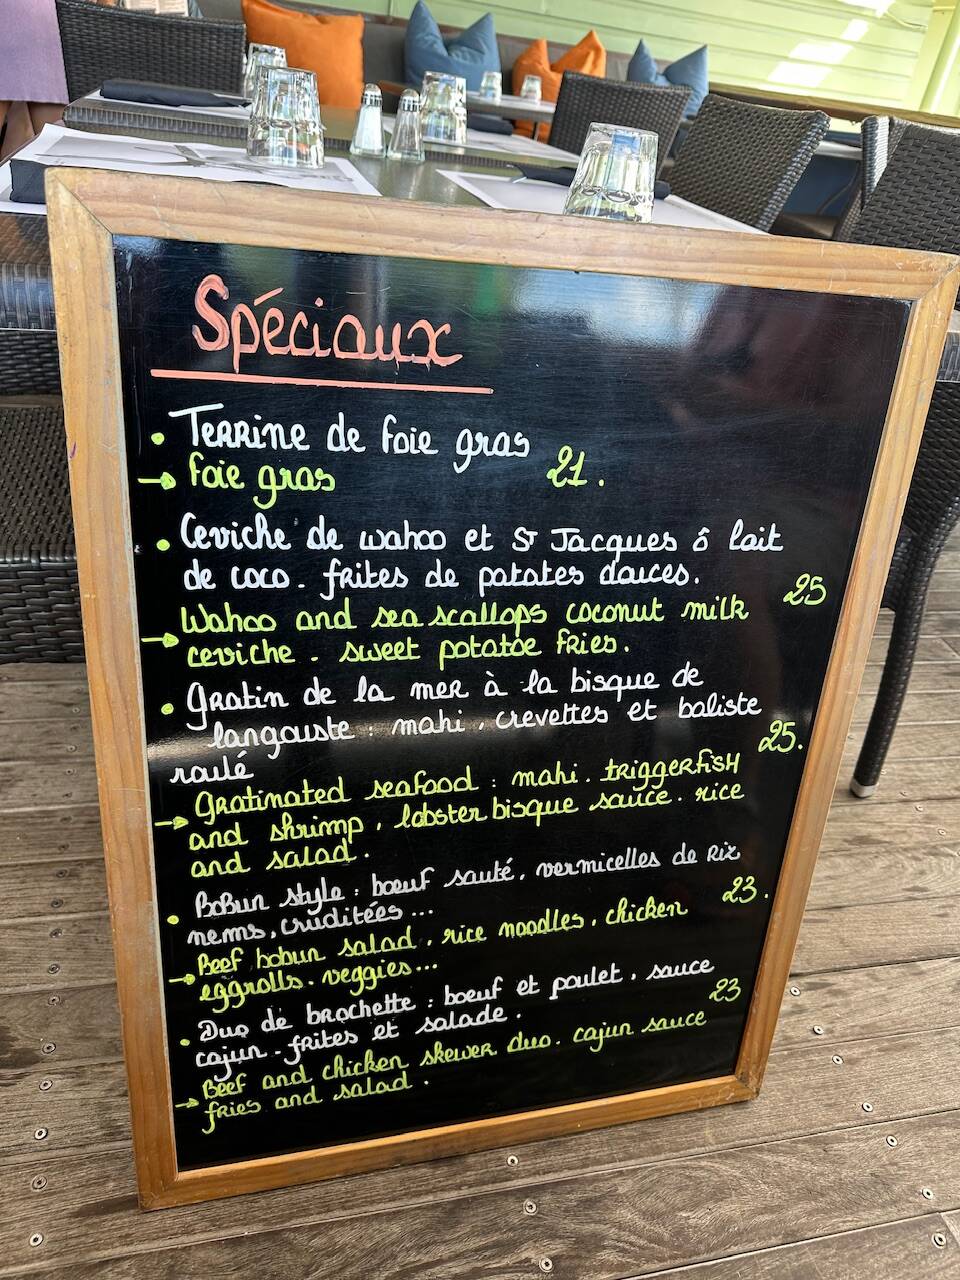 Spéciaux
• Terrine de foie gras
→ foie gras 21.
• Ceviche de wahoo et St Jacques ô lait
de coco. frites de patates douces.
25
→ Wahoo and sea scallops coconut milk
ceviche. sweet potatoe fries.
• gratin de la mer à la bisque de
langouste : mahi, crevettes et baliste
roulé
25.
→ Gratinated seafood : mahi. triggerfish
and shrimp, lobster bisque sauce. rice
and salad.
• BoBun style : boeuf sauté, vermicelles de Riz
nems, crudités...
23.
→ Beef bobun salad, rice noodles, chicken
eggrolls. veggies...
• Duo de brochette : boeuf et poulet, sauce
cajun. frites et salade.
23
→ Beef and chicken skewer duo. cajun sauce
fries and salad.